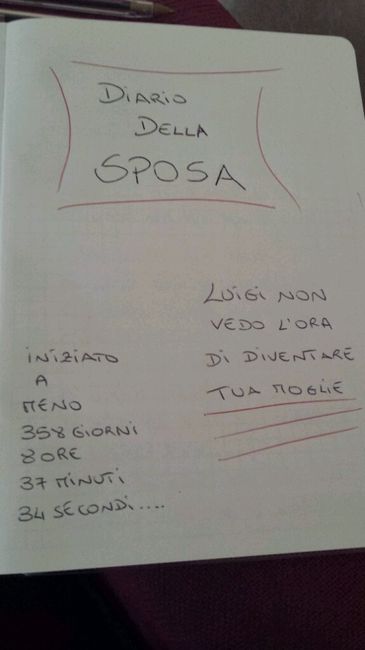 DIARIO
DELLA
SPOSA
LUIGI NON
VEDO L'ORA
DI DIVENTARE
TUA MOGLIE
INIZIATO
A
MENO
358 GIORNI
8 ORE
37 MINUTI
34 SECONDI....